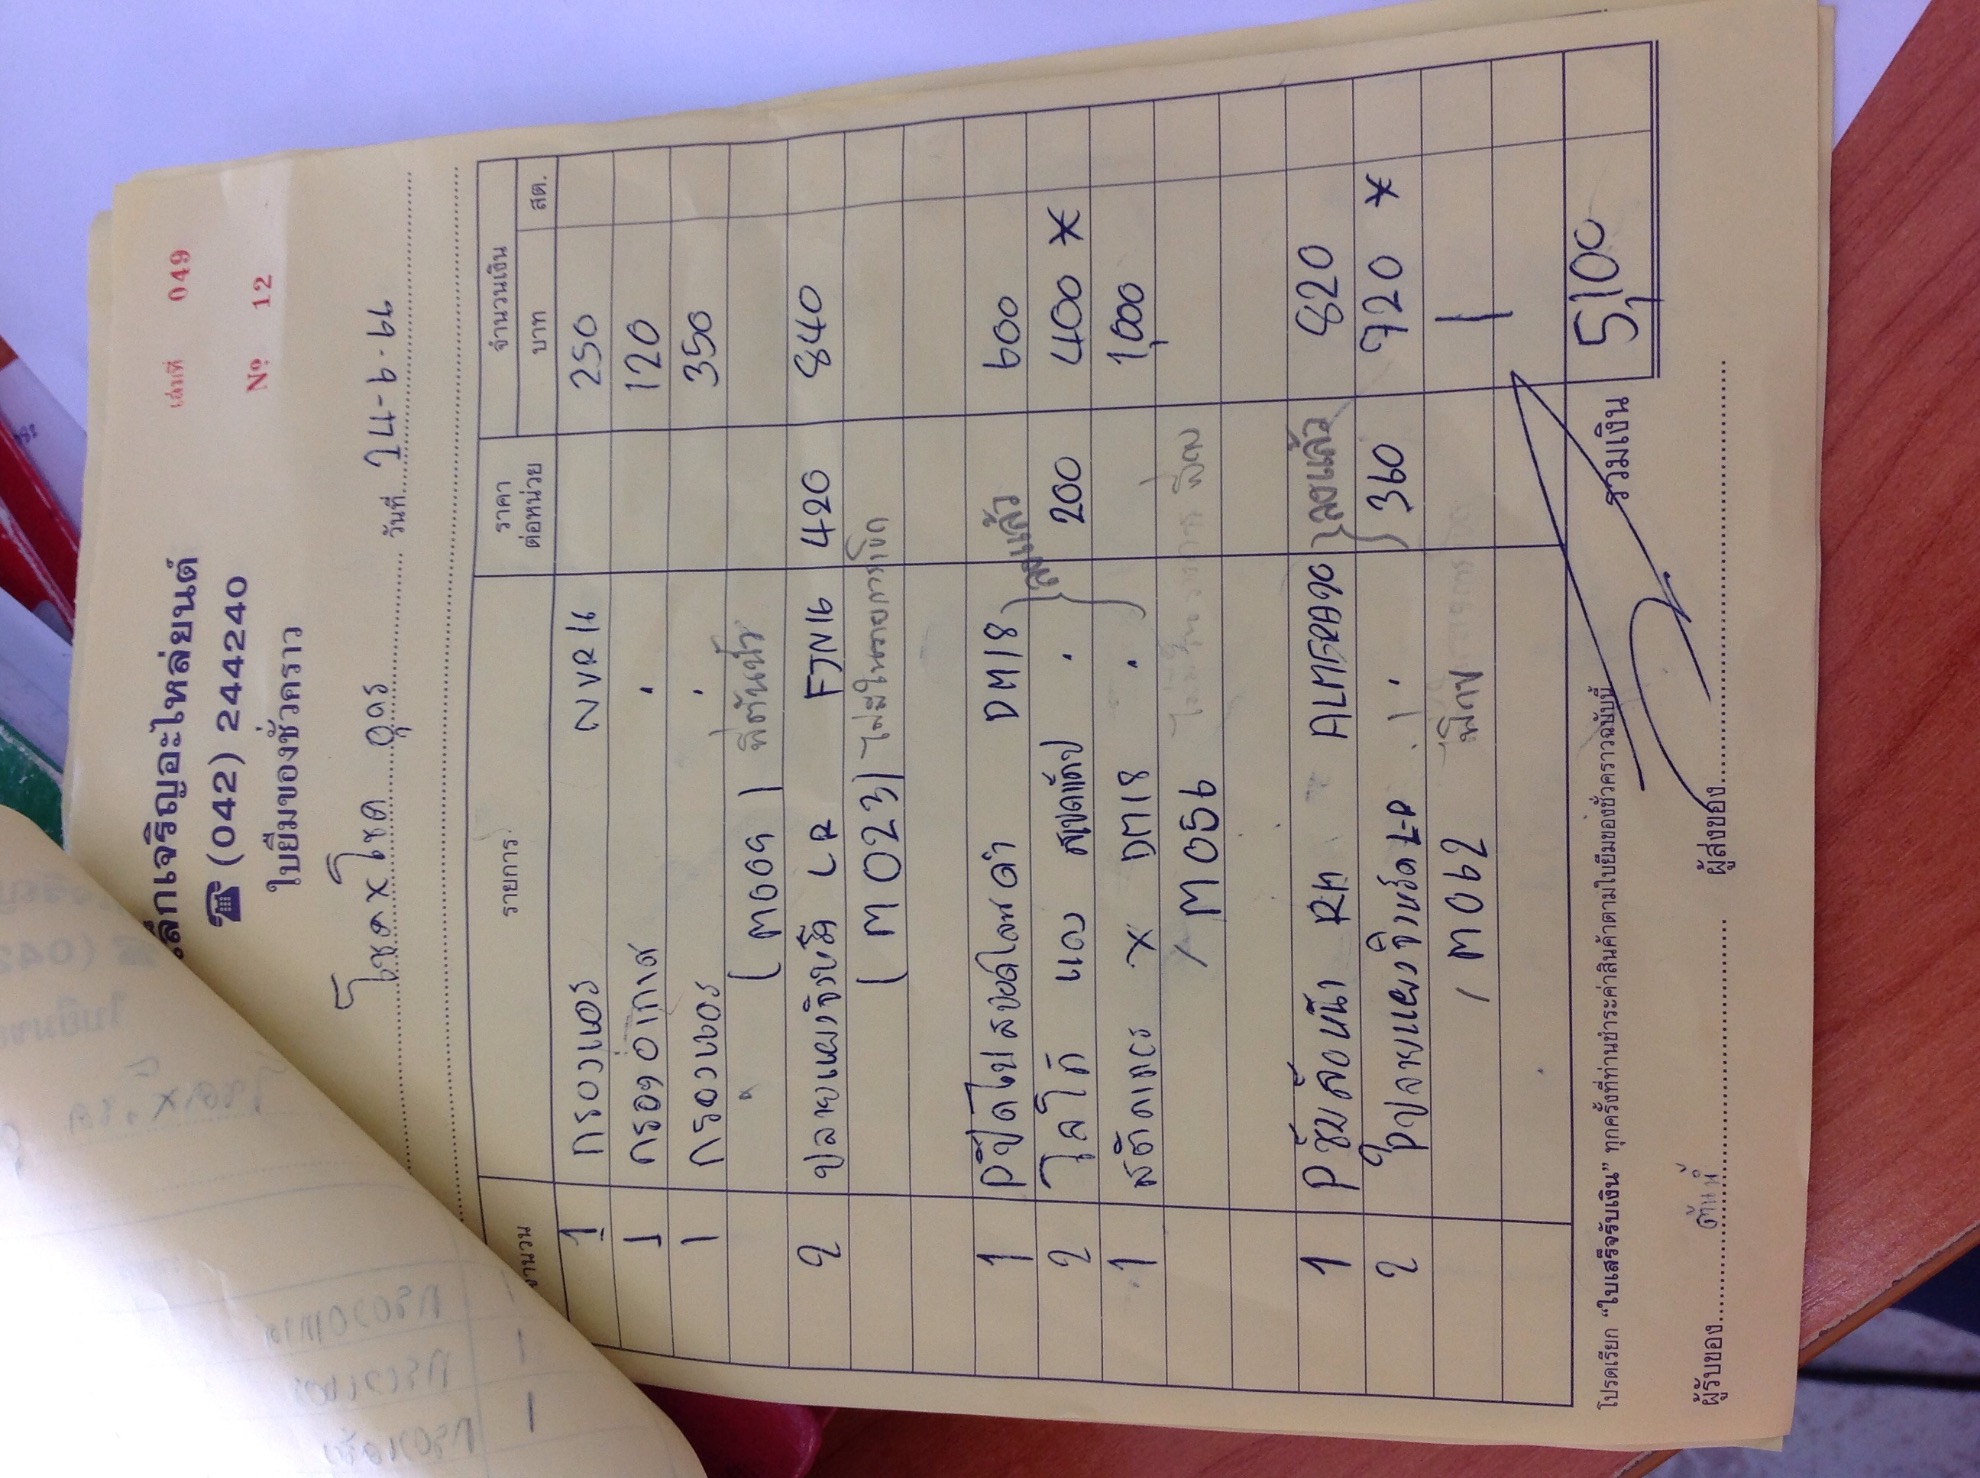 เล่มที่ 049
เล็กเจริญอะไหล่ยนต์
☎ (042) 244240
Nº 12
ใบยืมของชั่วคราว
โชคxโชค อุดร วันที่ 24-6-66
จำนวน รายการ ราคาต่อหน่วย จำนวนเงิน
บาท สต.
1 กรองแอร์ NVR16 250
1 กรองอากาศ " 120
1 กรองแอร์ " 350
(M009)
2 ปลายแผงจิ้งหรีด LR FJN16 420 840
(M023) ไม่มีในรายการโชค
1 Pปิดไฟสปอตไลท์ดำ DM18 600
2 โลโก้ แดง สแบดแต่ป . } ลงแล้ว 200 400 *
1 สติกเกอร์ X DM18 . 1,000
M056
1 Pซุ้มล้อหน้า RH ALMERA90 } ลงแล้ว 820
2 Pปลายแผงจิ้งหรีด LR " 360 720 *
M062
รวมเงิน 5,100
โปรดเรียก “ใบเสร็จรับเงิน” ทุกครั้งที่ท่านชำระค่าสินค้าตามใบยืมของชั่วคราวฉบับนี้
ผู้รับของ ผู้ส่งของ